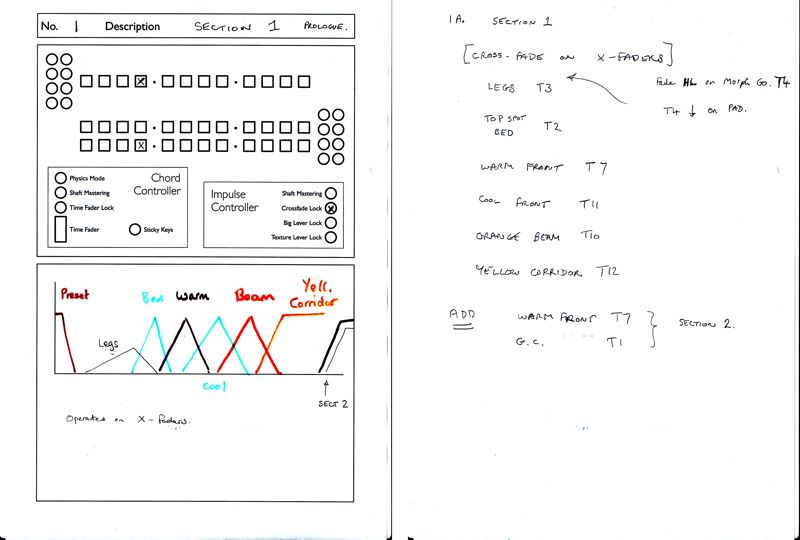 No. 1 Description SECTION 1 PROLOGUE.
Physics Mode
Shaft Mastering
Time Fader Lock
Time Fader
Chord
Controller
Sticky Keys
Impulse
Controller
Shaft Mastering
Crossfade Lock
Big Lever Lock
Texture Lever Lock
Preset
Legs
Bed
Warm
Cool
Beam
Yell.
Corridor
SECT 2
Operated on X-faders.
1A. SECTION 1
[CROSS-FADE ON X-FADERS]
Fade HL on Morph Go. T4
T4 ↓ on PAD.
LEGS T3
TOP SPOT
BED T2
WARM FRONT T7
COOL FRONT T11
ORANGE BEAM T10
YELLOW CORRIDOR T12
ADD WARM FRONT T7
G.C. T1
SECTION 2.